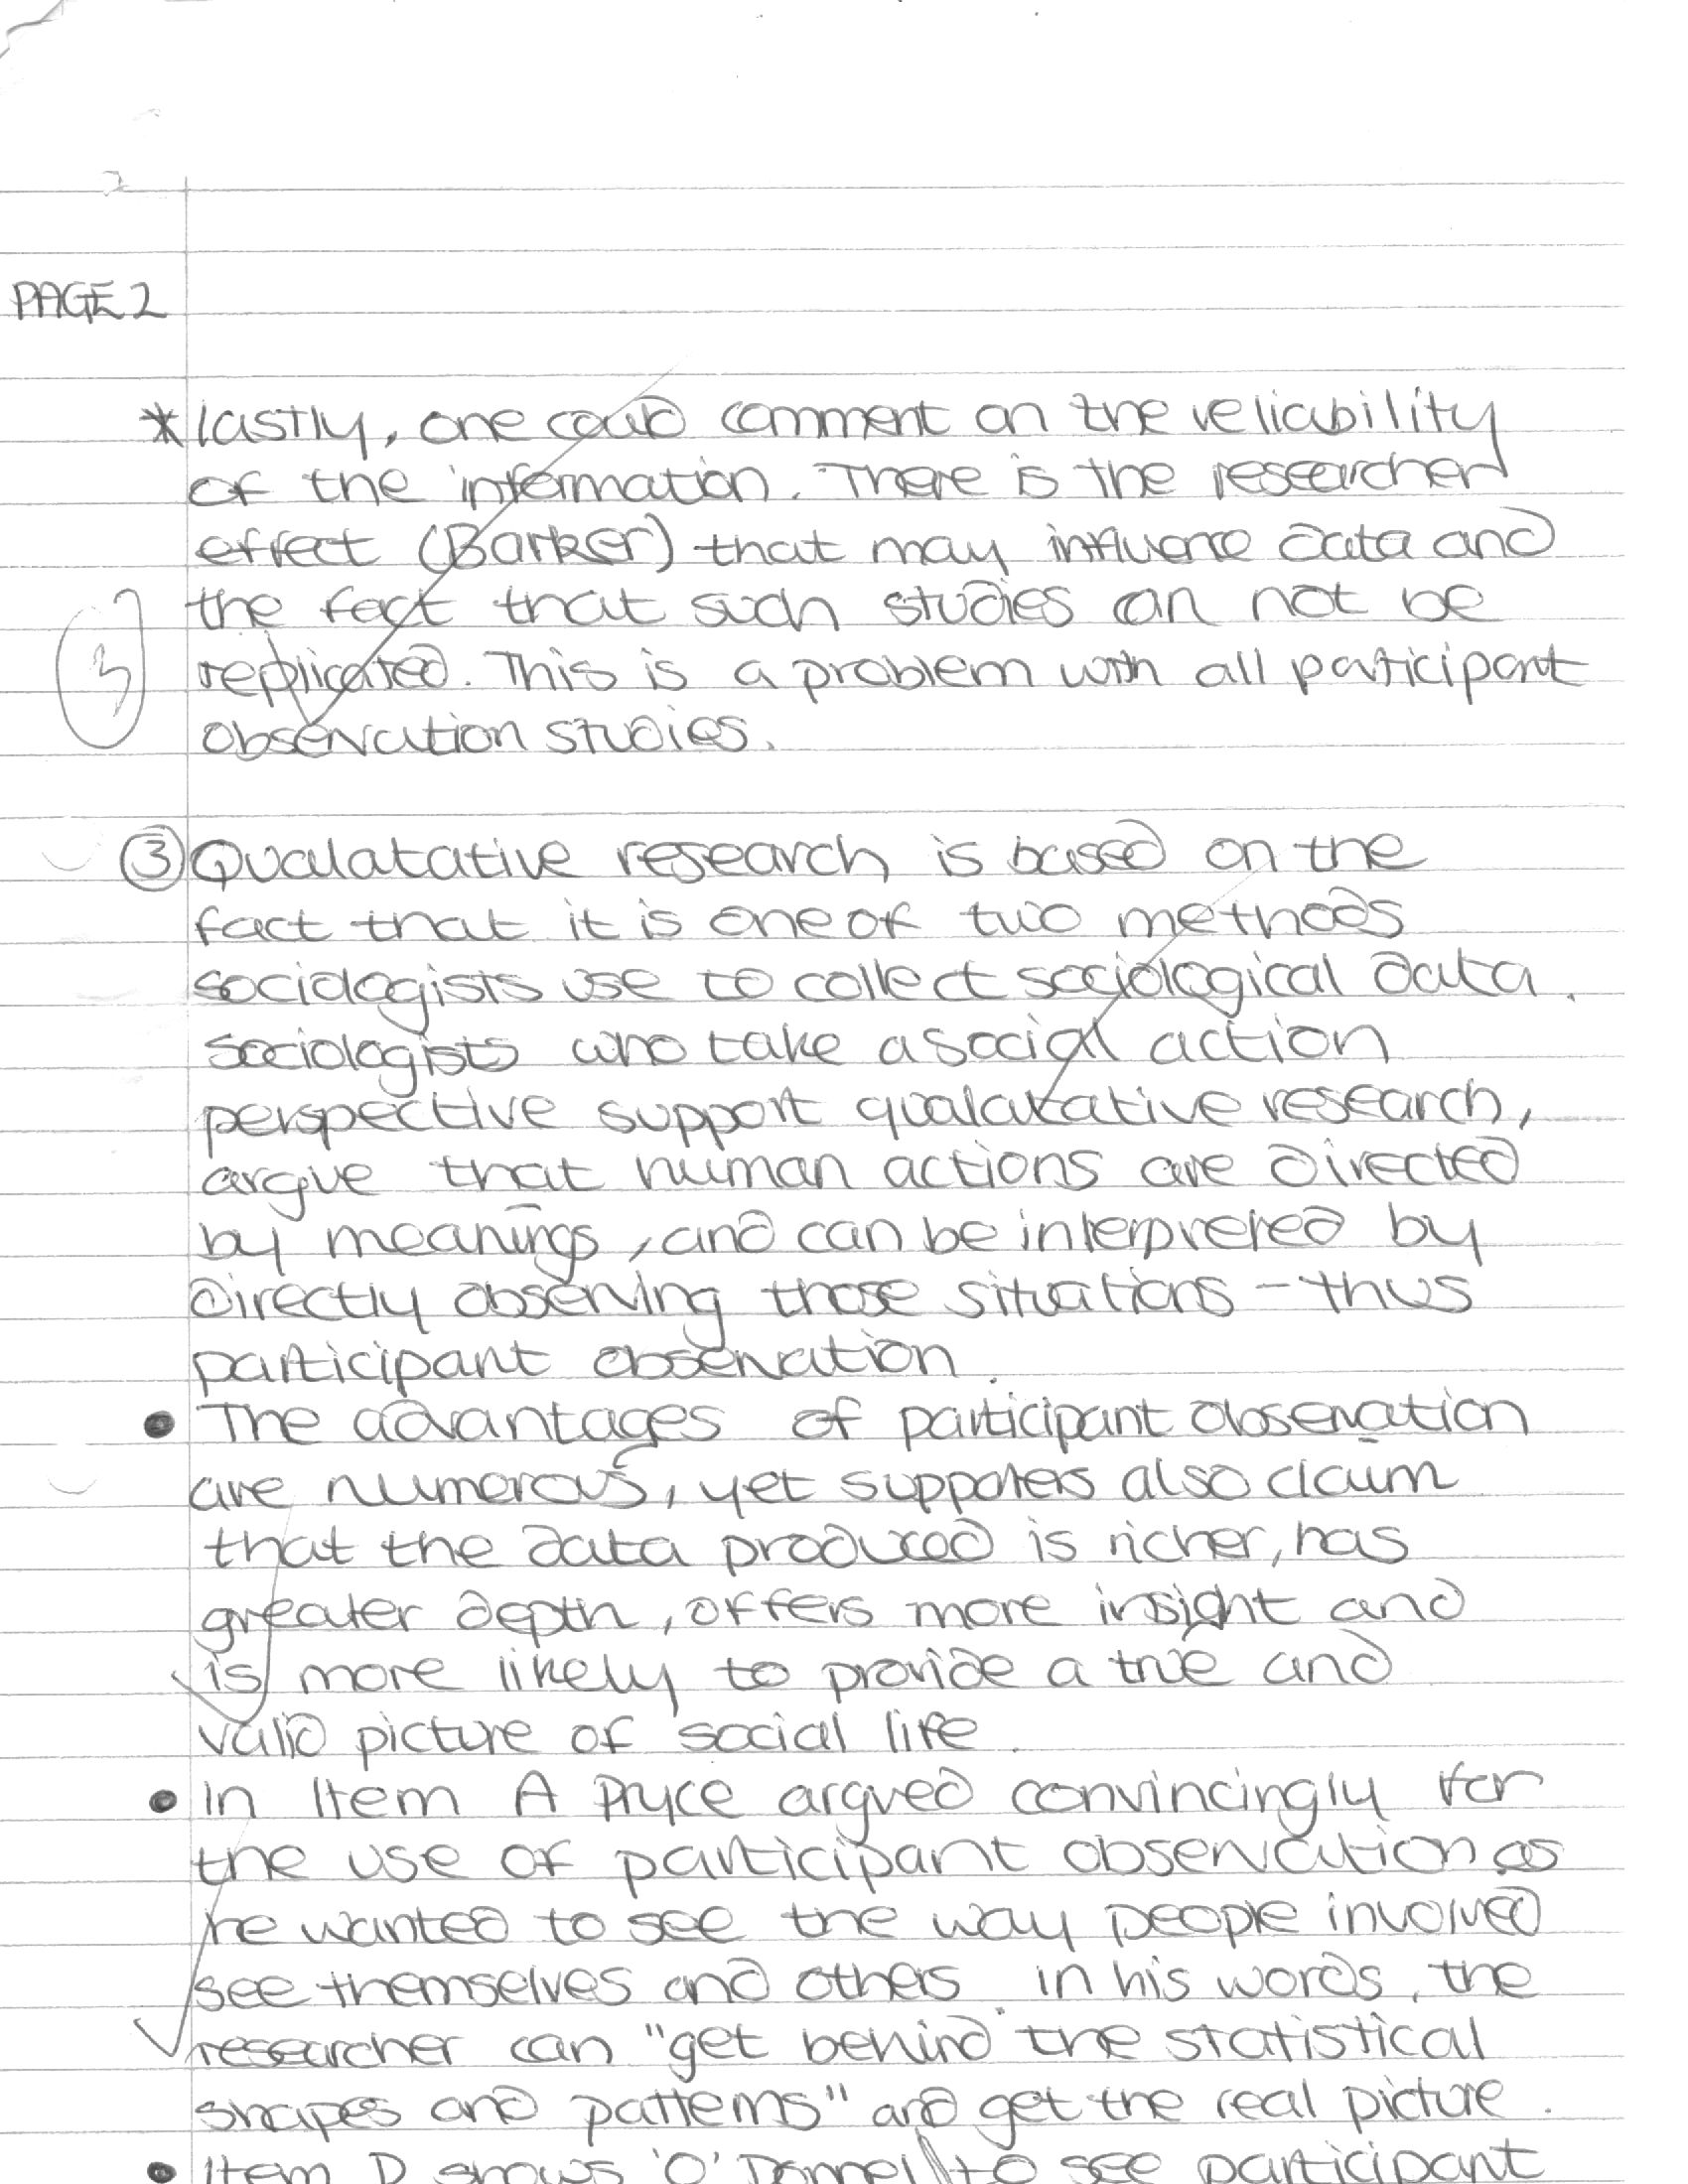 PAGE 2
*lastly, one could comment on the reliability
of the information. There is the researcher
effect (Barker) that may influence data and
the fact that such studies can not be
replicated. This is a problem with all participant
observation studies.
3
③ Qualatative research is based on the
fact that it is one of two methods
sociologists use to collect sociological data.
sociologists who take a social action
perspective support qualatative research,
argue that human actions are directed
by meanings, and can be interpreted by
directly observing those situations - thus
participant observation.
• The advantages of participant observation
are numerous, yet supporters also claim
that the data produced is richer, has
greater depth, offers more insight and
is more likely to provide a true and
valid picture of social life.
• In Item A Pryce argued convincingly for
the use of participant observation as
he wanted to see the way people involved
see themselves and others. in his words, the
researcher can "get behind the statistical
shapes and patterns" and get the real picture.
• Item D shows 'O' Donnell to see participant